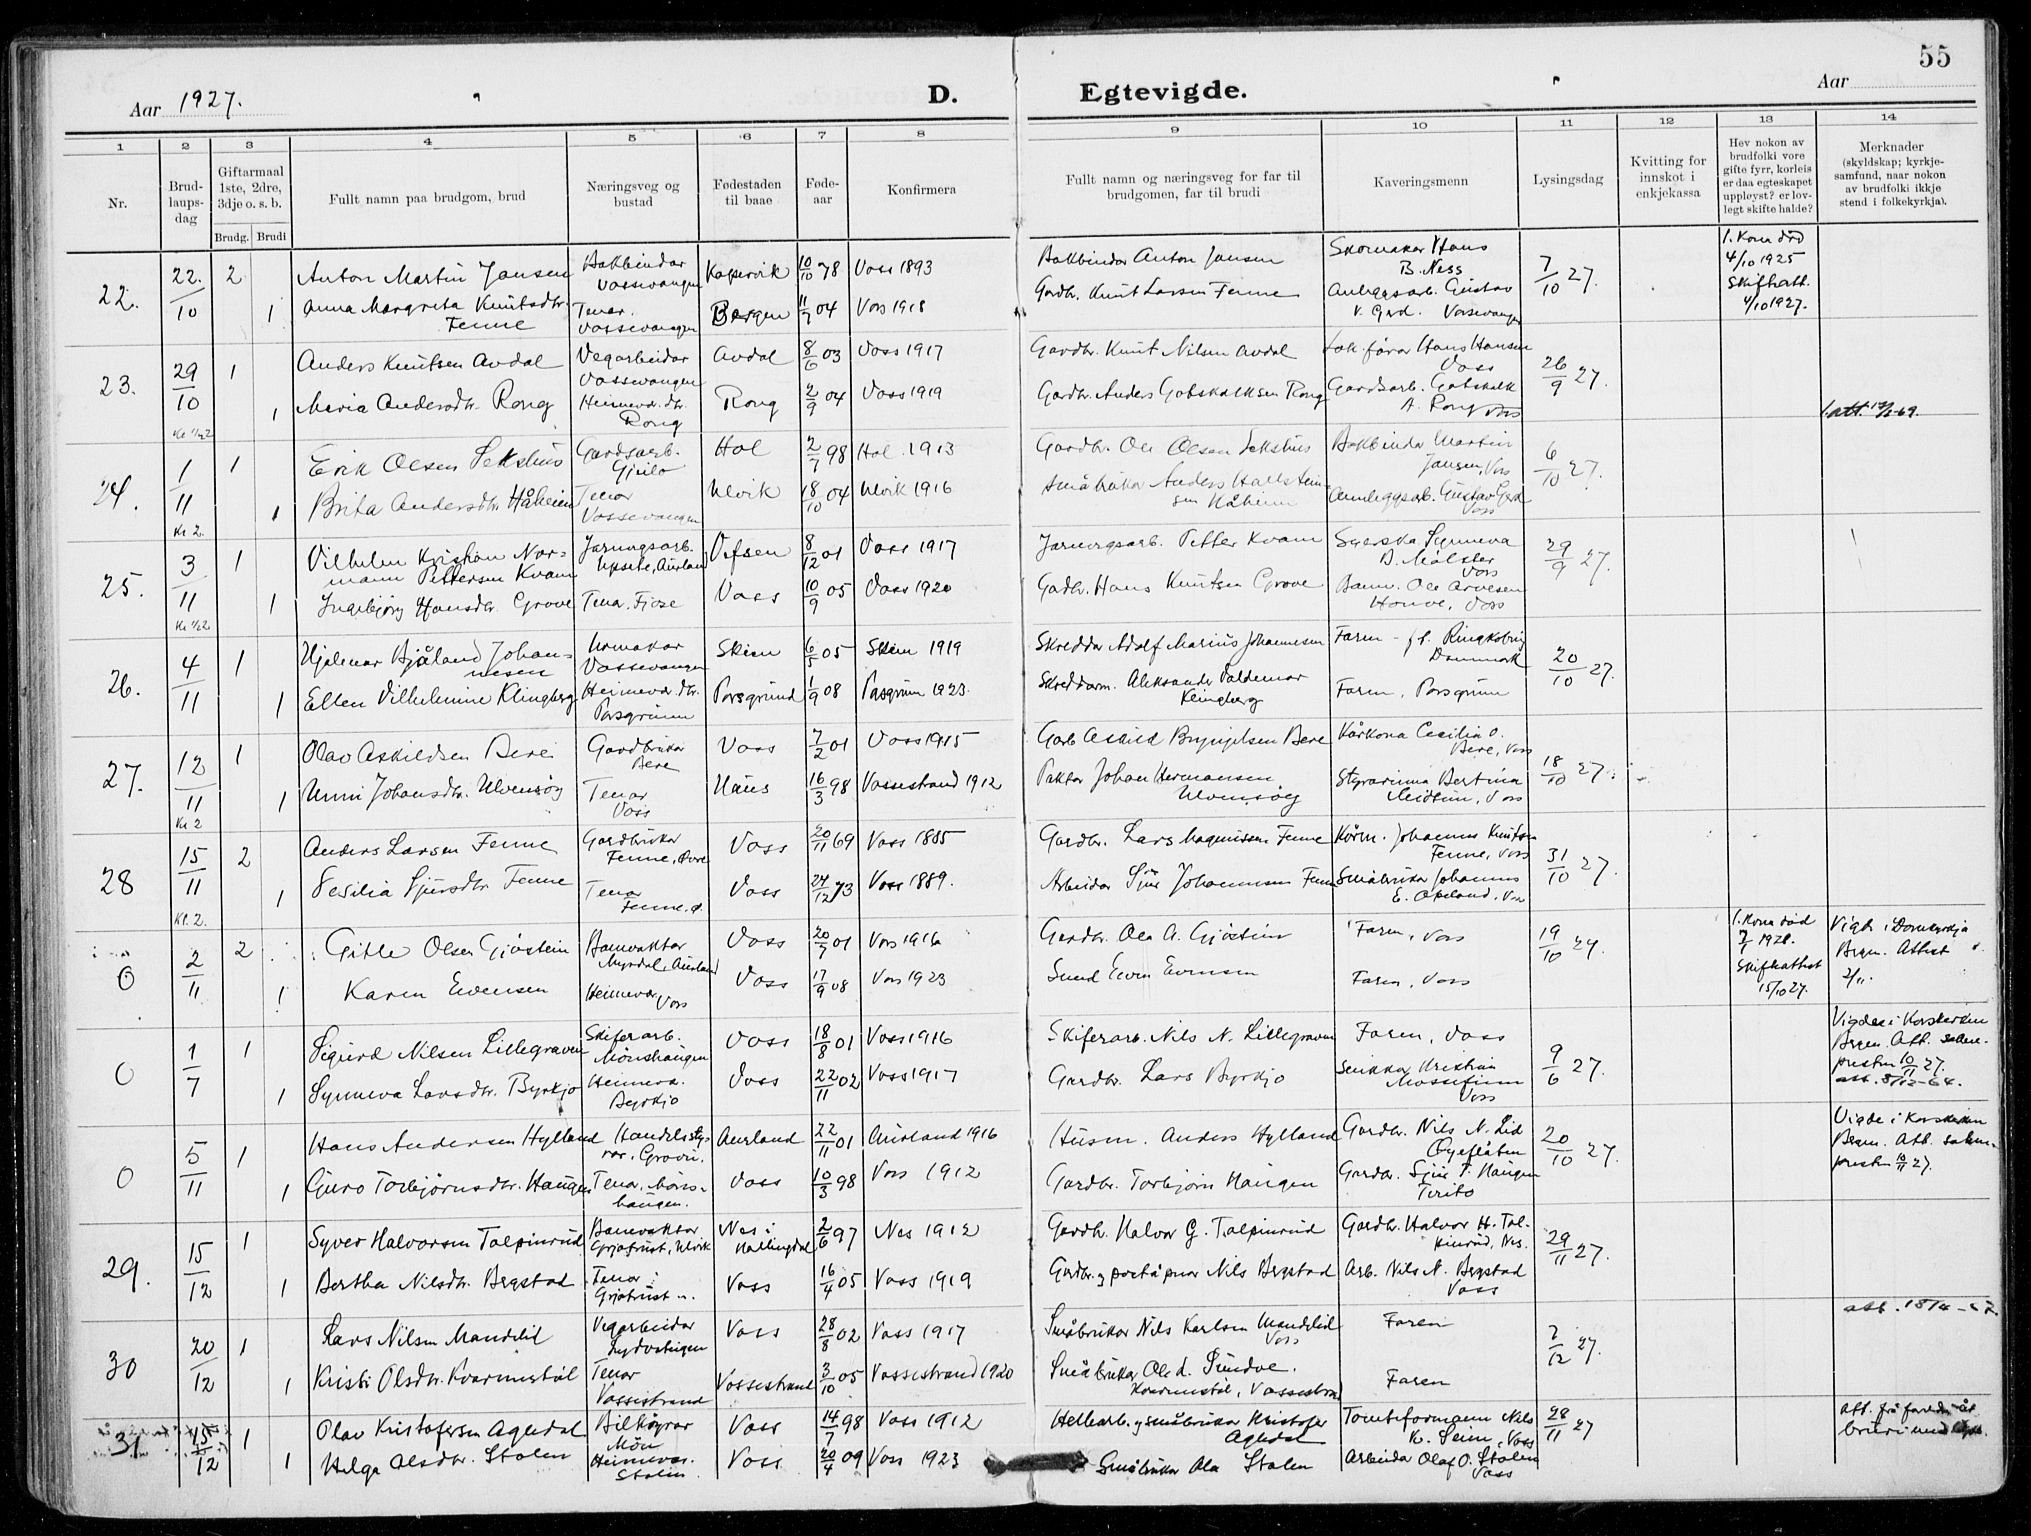 55
Aar 1927.
D. Egtevigde.
Aar
1 2 3 4 5 6 7 8 9 10 11 12 13 14
Nr.
Brud-
laups-
dag
Giftarmaal
1ste, 2dre,
3dje o. s. b.
Brudg. Brudi
Fullt namn paa brudgom, brud
Næringsveg og
bustad
Fødestaden
til baae
Føde-
aar
Konfirmera
Fullt namn og næringsveg for far til
brudgomen, far til brudi
Kaveringsmenn
Lysingsdag
Kvitting for
innskot i
enkjekassa
Hev nokon av
brudfolki vore
gifte fyrr, korleis
er daa egteskapet
uppløyst? er lov-
legt skifte halde?
Merknader
(skyldskap; kyrkje-
samfund, naar nokon
av brudfolki ikkje
stend i folkekyrkja).
22. 22./10 2 Anton Martin Jansen Bokbindar Vossevangen Kopervik 10/10 78 Voss 1893 Bokbindar Anton Jansen Skomakar Hans B. Ness 7/10 27. 1. Kona død 4/10 1925 Skifteatt. 4/10 1927.
1 Anna Margreta Knutsdtr. Fenne Tenar. Vossevangen Bergen 11/7 04 Voss 1918 Gardbr. Knut Larsen Fenne Anleggsarb. Gustav Vossevangen
23. 29/10 1 Anders Knutsen Avdal Vegarbeidar Vossevangen Avdal 8/6 03 Voss 1917 Gardbr. Knut Nilsen Avdal Lok.førar Hans Hansen Voss 26/9 27.
1 Maria Andersdtr. Rong Heimev. dtr. Rong Rong 2/9 04 Voss 1919 Gardbr. Anders Gotskalksen Rong Gardsarb. Gotskalk A. Rong Voss
24. 1/11 1 Erik Olsen Sekshus Gardsarb. Geilo Hol 2/7 98 Hol 1913 Gardbr. Ole Olsen Sekshus Bokbindar Martin Jansen, Voss 6/10 27.
Kr 2. 1 Brita Andersdtr. Håheim Tenar Vossevangen Ulvik 18/10 04 Ulvik 1916 Småbrukar Anders Hallsteinsen Håheim Anleggsarb. Gustav Voss
25. 3/11 1 Vilhelm Kristian Normann Pettersen Kvam Jarnvegsarb. Upsete, Aurland Vefsen 8/12 01 Voss 1917 Jarnvegsarb. Petter Kvam Syerska Synneva B. Mølster Voss 29/9 27.
1 Ingebjørg Hansdtr. Grove Tenar. Voss 10/9 05 Voss 1920 Gardbr. Hans Knutsen Grove Banv. Ole Arvesen Honve, Voss
26. 4/11 1 Hjalmar Bjåland Johannesen Urmakar Vossevangen Skien 6/5 05 Skien 1919 Skreddar Adolf Marius Johannesen Faren - Ringkøbing Danmark 20/10 27.
1 Ellen Vilhelmine Klingberg Heimev. dtr. Porsgrunn Porsgrund 1/9 08 Porsgrunn 1923. Skreddarm. Aleksander Valdemar Klingberg Faren, Porsgrunn
27. 12/11 1 Olav Askildsen Bere Gardbrukar Bere Voss 7/2 01 Voss 1915 Garb. Askild Brynjulsen Bere Kårkona Cecilia O. Bere, Voss 18/10 27.
Kr 2 1 Unni Johansdtr. Ulvensøg Tenar Voss Haus 16/3 98 Vossestrand 1912 Paktar Johan Hermansen Ulvensøg Styrarinna Bertina Voss
28 15/11 2 Anders Larsen Fenne Gardbrukar Fenne, Øvre Voss 20/11 69 Voss 1885 Gardbr. Lars Magnussen Fenne Kårm. Johannes Knutsen Fenne, Voss 31/10 27.
Kr. 2. 1 Sesilia Sjursdtr. Fenne Tenar Fenne, ø. Voss 24/12 73 Voss 1889. Arbeidar Sjur Johannesen Fenne Småbrukar Johannes E. Voss
0 2/11 2 Gitle Olsen Gjøstein Banevaktar Myrdal, Aurland Voss 20/7 01 Voss 1916 Gardbr. Ole A. Gjøstein Faren, Voss 19/10 27. 1. Kona død Skifteattest 15/10 27. Vigde i Domkyrkja Bergen. Attest 2/11.
1 Karen Evensen Heimev. Voss Voss 17/9 08 Voss 1923 Smed Even Evensen Faren, Voss
0 1/7 1 Sigurd Nilsen Lillegraven Skiferarb. Mønshaugen Voss 18/8 01 Voss 1916 Skiferarb. Nils N. Lillegraven Faren, Voss 9/6 27. Vigde i Korskyrkja Bergen. Att. sokneprest 10/11 27. att. 8/12-64.
1 Synneva Larsdtr. Byrkjo Heimev. Byrkjo Voss 22/11 02 Voss 1917 Gardbr. Lars Byrkjo Kristian Voss
0 5/11 1 Hans Andersen Hylland Handelsstyrar, Grovu. Aurland 22/11 01 Aurland 1916 Husm. Anders Hylland Gardbr. Nils N. Lid Øyeflåten 20/10 27. Vigde i Korskyrkja Bergen. Att. sokneprest 10/11 27.
1 Guro Torbjørnsdtr. Haugen Tenar, Mønshaugen. Voss 10/3 98 Voss 1912 Gardbr. Torbjørn Haugen Gardbr. Sjur T. Haugen
29. 15/12 1 Syver Halvorsen Tolpinrud Banevaktar Grjotrust, Ulvik Nes i Hallingdal 2/6 97 Nes 1912 Gardbr. Halvor G. Tolpinrud Gardbr. Halvor H. Tolpinrud, Nes. 29/11 27.
1 Bertha Nilsdtr. Bergstad Tenar Grjotrust Voss 16/4 05 Voss 1919 Nils Bergstad Arb. Nils N. Bergstad Voss
30 20/12 1 Lars Nilsen Mandelid Vegarbeidar Voss 28/8 02 Voss 1917 Småbrukar Nils Karlsen Mandelid Voss Faren 2/12 27.
1 Kristi Olsdtr. Kvarmestøl Tenar Vossestrand Vossestrand 3/10 05 Vossestrand 1920 Småbrukar Ole Kvarmestøl, Vossestrand Faren
31 15/12 1 Olav Kristofersen Agledal Bilkøyrar Møn Voss 14/7 98 Voss 1912 Hellearb. og småbrukar Kristofer Agledal Tomteformann Nils K. Seim, Voss 28/11 27
1 Helga Olsdtr. Stølen Heimev. Stølen Voss 20/4 09 Voss 1923 Småbrukar Ola Stølen Arbeidar Olaf O. Stølen Voss